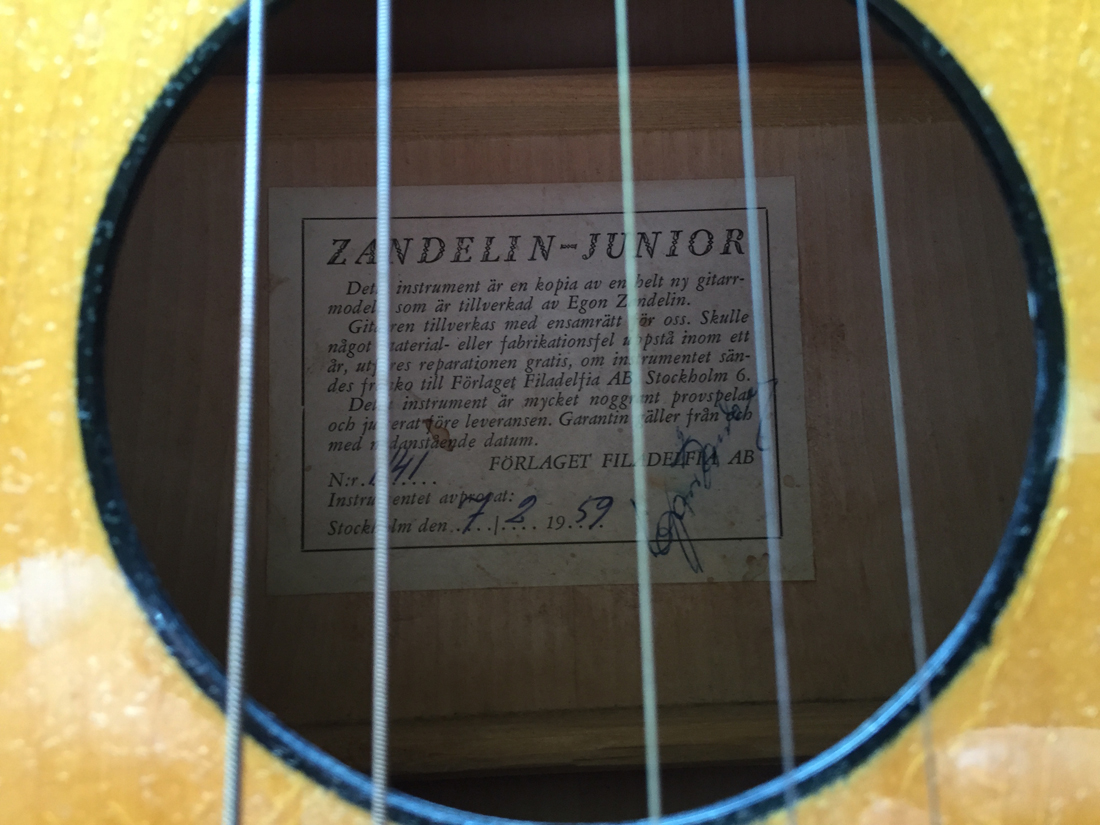 ZANDELIN-JUNIOR
Detta instrument är en kopia av en helt ny gitarr-
modell, som är tillverkad av Egon Zandelin.
Gitarren tillverkas med ensamrätt för oss. Skulle
något material- eller fabrikationsfel uppstå inom ett
år, utföres reparationen gratis, om instrumentet sän-
des frisko till Förlaget Filadelfia AB, Stockholm 6.
Detta instrument är mycket noggrant provspelat
och justerat före leveransen. Garantin gäller från och
med nedanstående datum.
FÖRLAGET FILADELFIA AB
N:r.....
Instrumentet avprovat:
Stockholm den 7/2 1959